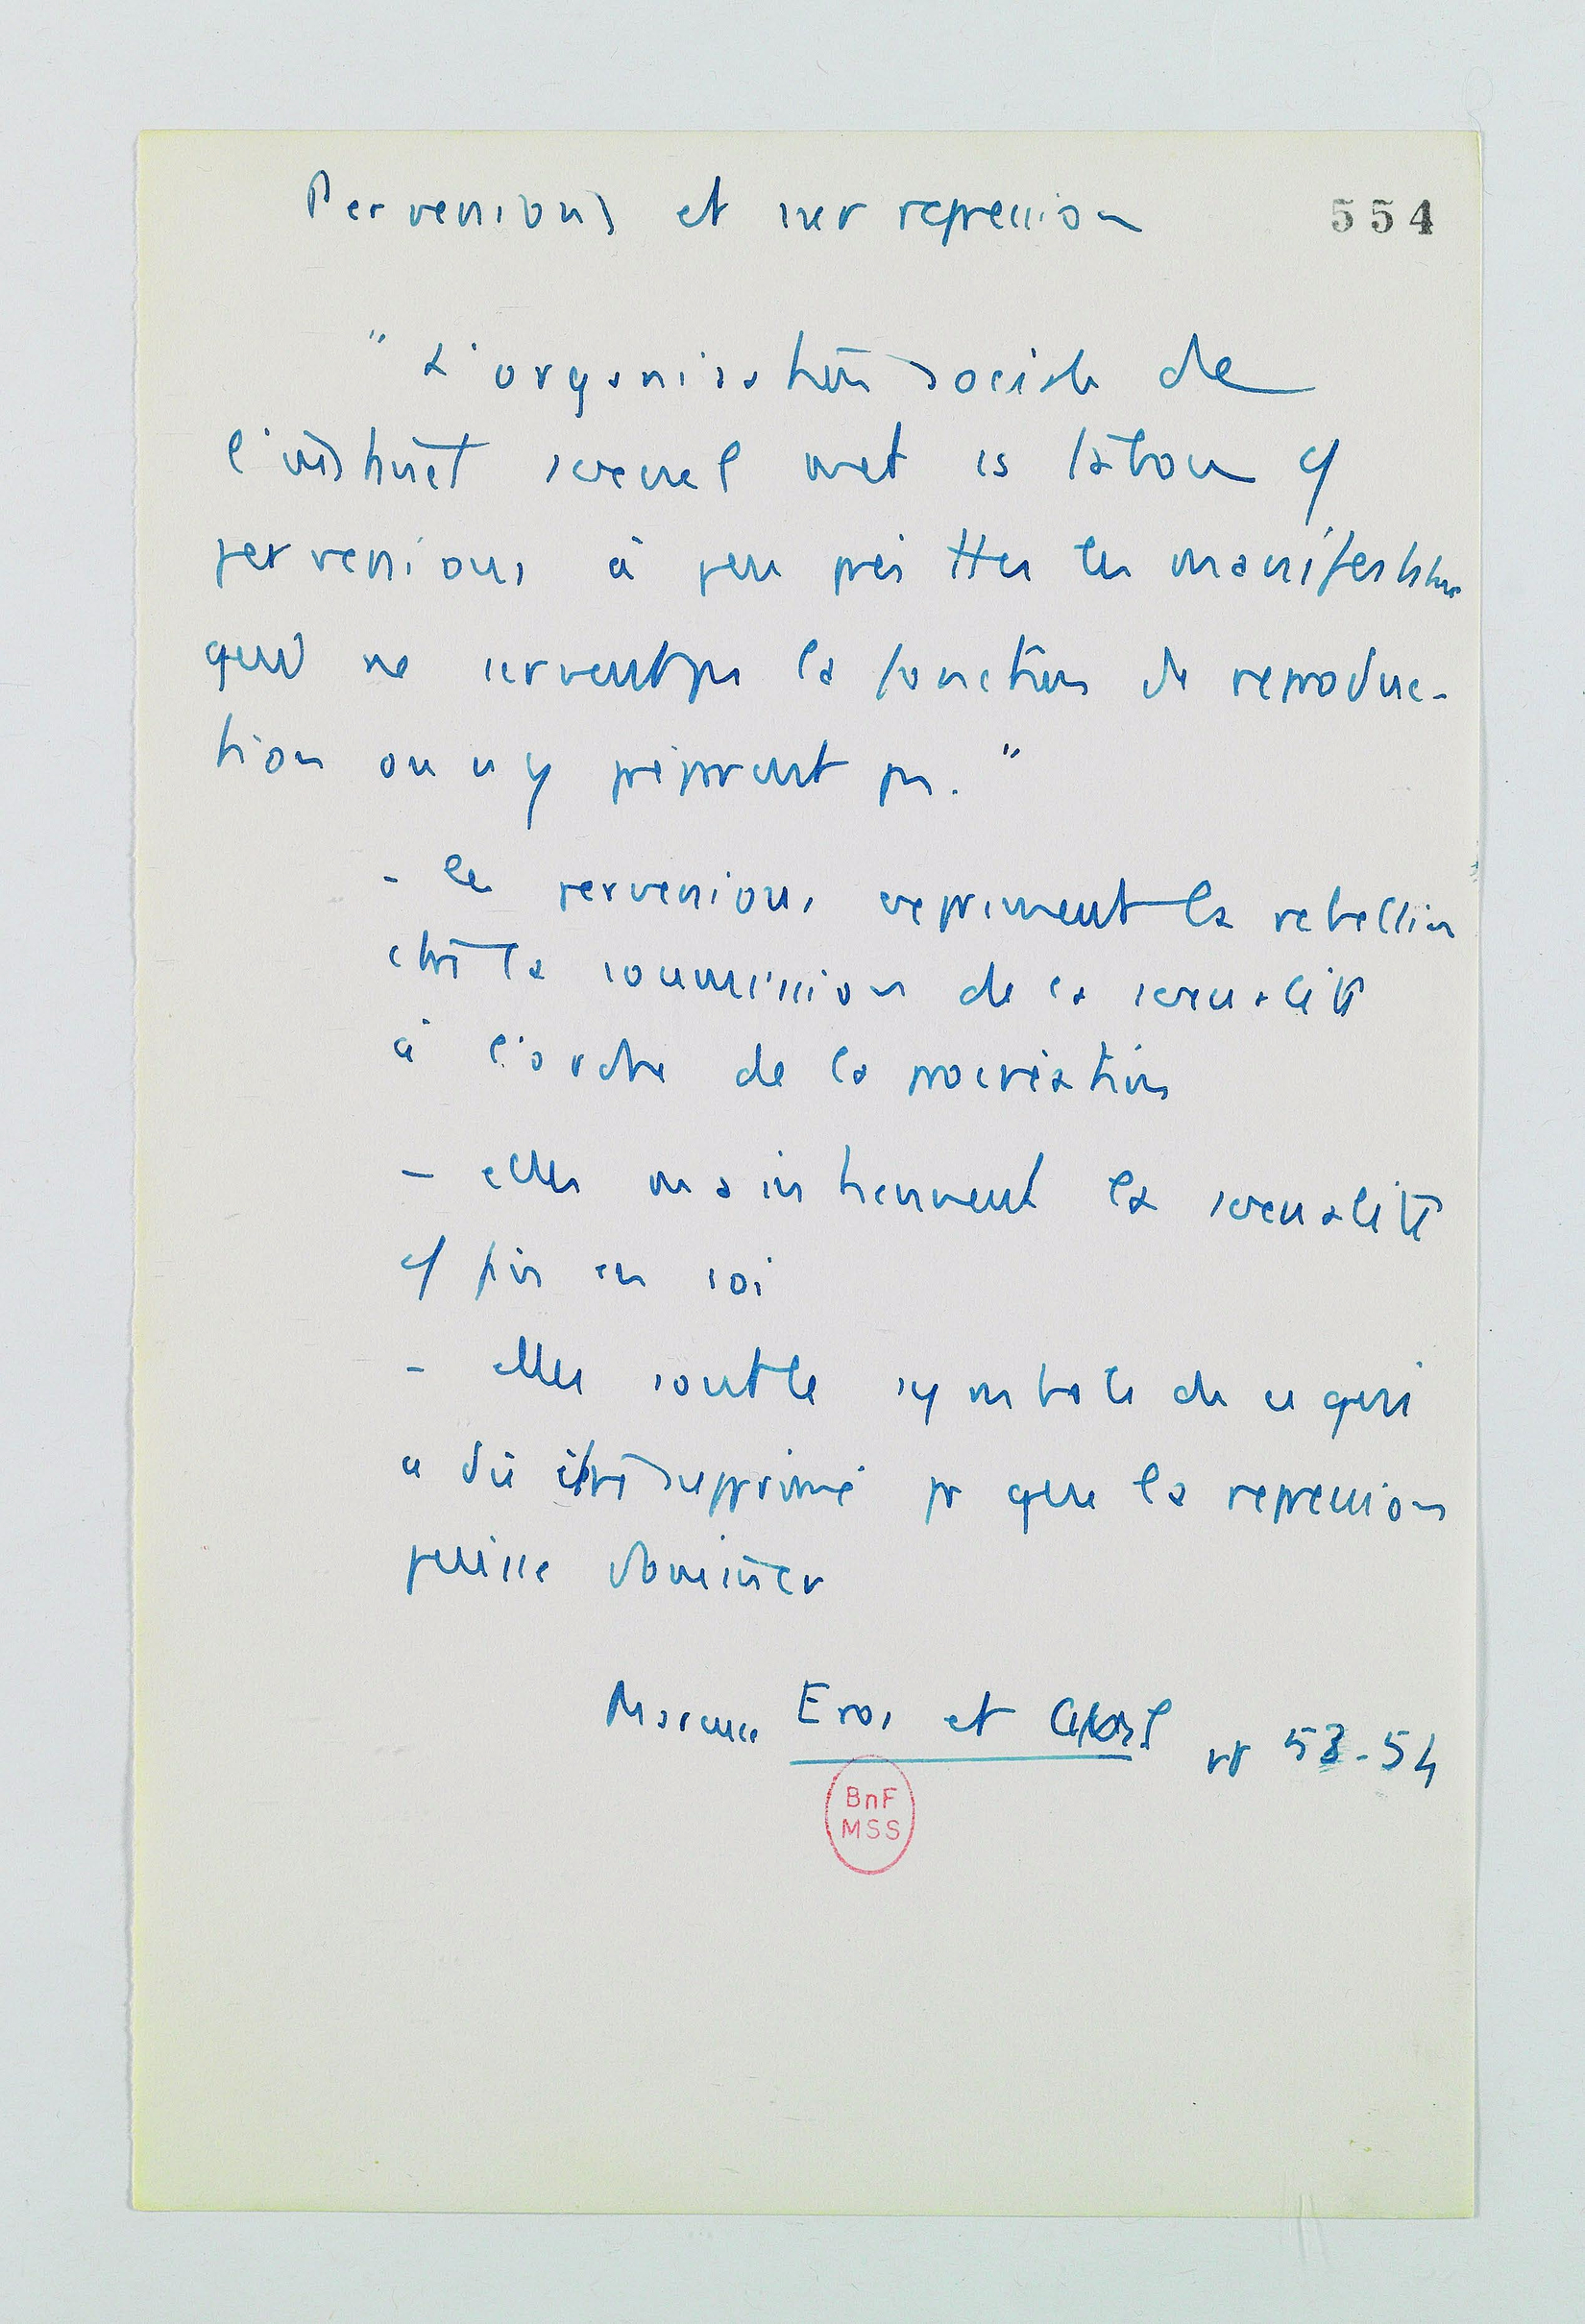 Perversions et sur repression
554
" L'organisation sociale de
l'instinct sexuel met is tabou cō
perversions à peu près ttes les manifestations
qui ne servent pas la fonction de reproduc-
tion ou n'y préparent pas. "
- les perversions expriment la rebellion
ctre la soumission de la sexualité
à l'ordre de la procréation
- elles maintiennent la sexualité
cō fin en soi
- elles sont le symbole de ce qui
a dû être supprimé pr que la repression
puisse dominer
Marcuse Eros et pp 53-54
BnF
MSS